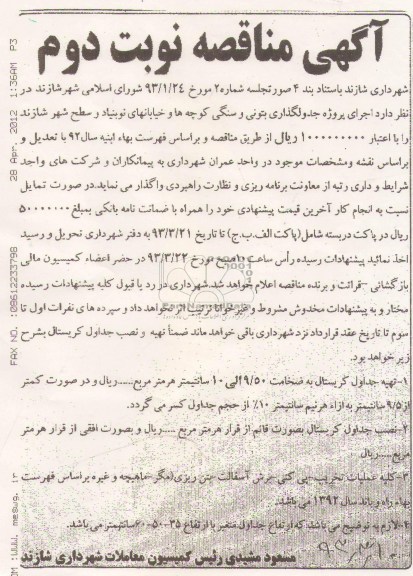 آگهی مناقصه نوبت دوم
شهرداری شازند باستناد بند ۴ صورتجلسه شماره۲ مورخ ۹۳/۱/۲۴ شورای اسلامی شهرشازند در
نظر دارد اجرای پروژه جدولگذاری بتونی و سنگی کوچه ها و خیابانهای نوبنیاد و سطح شهر شازند
را با اعتبار ۱۰۰۰۰۰۰۰۰۰ ریال از طریق مناقصه و براساس فهرست بهاء ابنیه سال۹۲ با تعدیل و
براساس نقشه ومشخصات موجود در واحد عمران شهرداری به پیمانکاران و شرکت های واجد
شرایط و داری رتبه از معاونت برنامه ریزی و نظارت راهبردی واگذار می نماید.در صورت تمایل
نسبت به انجام کار آخرین قیمت پیشنهادی خود را همراه با ضمانت نامه بانکی بمبلغ ۵۰۰۰۰۰۰۰
ریال در پاکت دربسته شامل(پاکت الف.ب.ج) تا تاریخ ۹۳/۳/۲۱ به دفتر شهرداری تحویل و رسید
اخذ نمائید پیشنهادات رسیده رأس ساعت مورخ ۹۳/۳/۲۲ در حضر اعضاء کمیسیون مالی
بازگشائی -قرائت و برنده مناقصه اعلام خواهد شد.شهرداری در رد یا قبول کلیه پیشنهادات رسیده
مختار و به پیشنهادات مخدوش مشروط و غیر خوانا ترتیب اثر نخواهد داد و سپرده های نفرات اول تا
سوم تا تاریخ عقد قرارداد نزد شهرداری باقی خواهد ماند ضمناً تهیه و نصب جداول کریستال بشرح
زیر خواهد بود.
۱-تهیه جداول کریستال به ضخامت ۹/۵۰ الی ۱۰ سانتیمتر هرمتر مربع.....ریال و در صورت کمتر
از۹/۵سانتیمتر به ازاء هر نیم سانتیمتر ۱۰٪ از حجم جداول کسر می گردد.
۲-نصب جداول کریستال بصورت قائم از قرار هرمتر مربع .....ریال و بصورت افقی از قرار هر متر
مربع.....ریال
۳-کلیه عملیات تخریب-پی کنی-برش آسفالت-بتن ریزی(مگر-ماهیچه و غیره براساس فهرست
بهاء راه و باند سال ۱۳۹۲ می باشد.
۴-لازم به توضیح می باشد که ارتفاع جداول متغیر با ارتفاع ۳۵-۵۰-۶۰سانتیمتر می باشد.
مسعود مشیدی رئیس کمیسیون معاملات شهرداری شازند
FAX NO. :08612233798
28 Apr. 2012 1:36AM P3